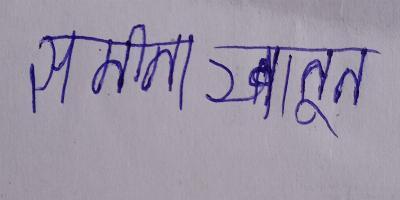 समीना खातून